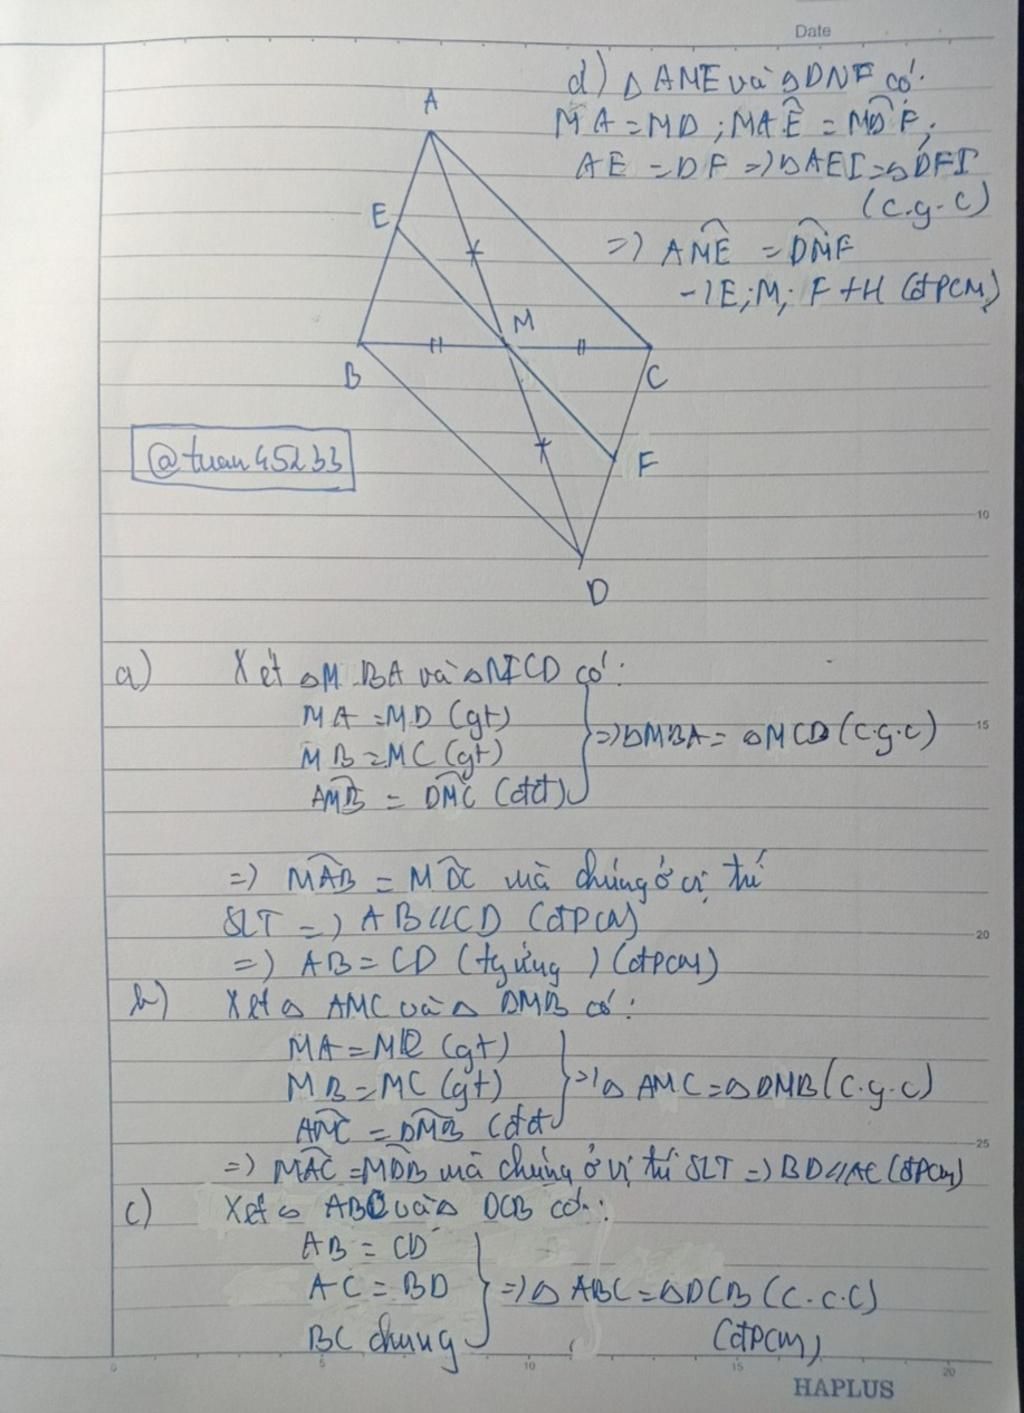 Date
d) △ AME và △ DNF có:
MA = MD ; MAÊ = MD̂F ;
AE = DF => △AEI = △DFI
(c.g.c)
=> AMÊ = DMF
-> E; M; F tH (đPCM)
A
E
M
B
C
@tuan45233
F
10
D
a) Xét △M BA và △MCD có:
MA = MD (gt)
MB = MC (gt) => △MBA = △MCD (c.g.c)
15
AMB = DMC (đđ)
=> MAB = MDC mà chúng ở vị trí
SLT => AB//CD (đPCM)
20
=> AB = CD (tg ứng) (đPCM)
b) Xét △ AMC và △ DMB có:
MA = MD (gt)
MB = MC (gt) => △ AMC = △ DMB (c.g.c)
AMC = DMB (đđ)
25
=> MAC = MDB mà chúng ở vị trí SLT => BD//AC (đPCM)
c) Xét △ ABC và △ DCB có:
AB = CD
AC = BD => △ ABC = △DCB (c.c.c)
BC chung (đPCM)
0 5 10 15 20
HAPLUS